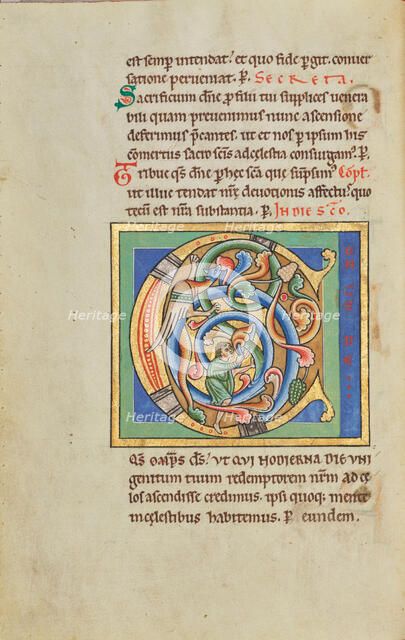 est semp intendat. et quo fide pgit. conver
satione perveniat. P. Secreta.
Sacrificium dne p filii tui supplices venera
bili quam prevenimus nunc ascensione
deferimus pcantes. ut et nos p ipsum his
comertiis sacrosctis ad celestia consurgam. P.
Tribue qs dne p hec sca que supsim. Copt.
ut illuc tendat nre devotionis affectu. quo
tecu est nra substantia. P. IN DIE SCO
heritage Images
heritage Images
heritage Images
QS OMPS DS. UT QUI HODIERNA DIE UNI
genitum tuum redemptorem nrm ad ce
los ascendisse credimus. ipsi quoq; mente
in celestibus habitemus. P eundem.